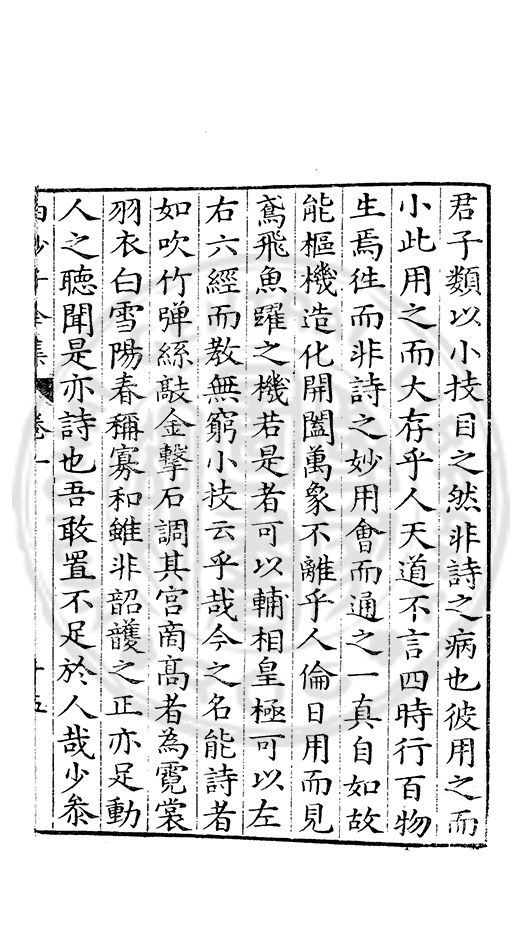 君子類以小技目之然非詩之病也彼用之而
小此用之而大存乎人天道不言四時行百物
生焉徃而非詩之妙用會而通之一真自如故
能樞機造化開闔萬象不離乎人倫日用而見
鳶飛魚躍之機若是者可以輔相皇極可以左
右六經而教無窮小技云乎哉今之名能詩者
如吹竹彈絲敲金擊石調其宮商高者為霓裳
羽衣白雪陽春稱寡和雖非韶頀之正亦足動
人之聽聞是亦詩也吾敢置不足於人哉少叅
白沙子全集 卷一 十五